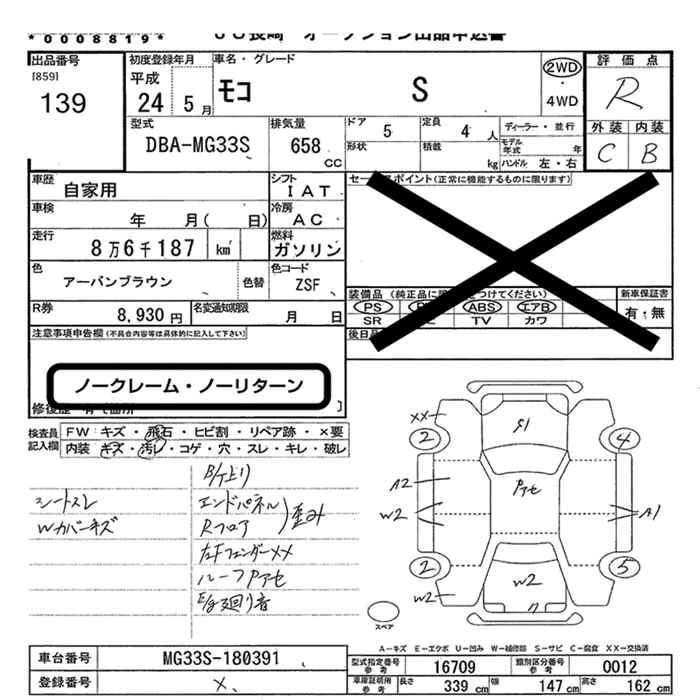 *0008819*
JU長崎 オークション出品申込書
出品番号
[859]
139
初度登録年月
平成
24 5 月
車名・グレード
モコ S
2WD
・
4WD
評価点
R
外装 内装
C B
型式
DBA-MG33S
排気量
658
CC
ドア 5
定員 4 人
ディーラー・並行
形状
積載 kg
モデル年式 年
ハンドル 左・右
車歴 自家用
シフト IAT
車検 年 月( 日)
冷房 AC
走行 8万6千187 km
燃料 ガソリン
色 アーバンブラウン
色替
色コード ZSF
R券 8,930円
名変通知期限 月 日
セールスポイント(正常に機能するものに限ります)
装備品 (純正品に限 をつけてください)
PS ABS エアB
SR TV カワ
新車保証書
有・無
後日
注意事項申告欄(不具合内容等は具体的に記入して下さい)
ノークレーム・ノーリターン
修復歴
検査員
記入欄
FW キズ・飛石・ヒビ割・リペア跡・×要
内装 キズ・汚レ・コゲ・穴・スレ・キレ・破レ
シートスレ
Wカバーキズ
エンドパネル
Rフロア
歪み
左Fフェンダーxx
ルーフPアセ
E/g廻り音
xx
S1
2
4
A2
Pアセ
W2
A1
2
5
W2
W2
スペア
A-キズ E-エクボ U-凹み W-補修跡 S-サビ C-腐食 XX-交換済
車台番号 MG33S-180391
登録番号 ×
型式指定番号
参考
16709
類別区分番号
参考
0012
車庫証明用
参考
長さ 339 cm
幅 147 cm
高さ 162 cm